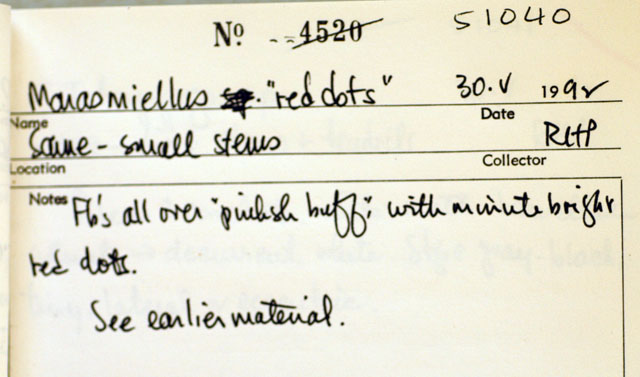 Nº 4520 51040
Marasmiellus "red dots" 30.V 1992
Name Date
Same - small stems RHP
Location Collector
Notes Fb's all over "pinkish buff"; with minute bright
red dots.
See earlier material.